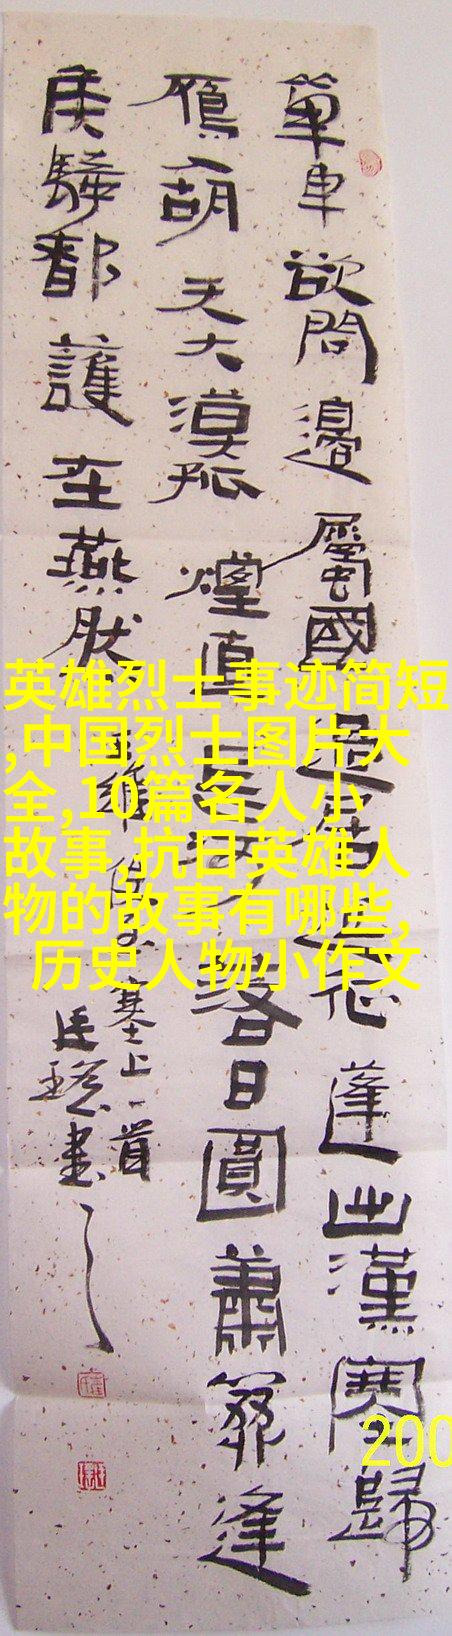 單車欲問邊屬國過居延征蓬出漢塞歸
鴈入胡天大漠孤煙直長河落日圓蕭關逢
候騎都護在燕然
王維使至塞上一首
書
英雄烈士事迹简短
,中国烈士图片大
全,10篇名人小
故事,抗日英雄人
物的故事有哪些,
历史人物小作文
200